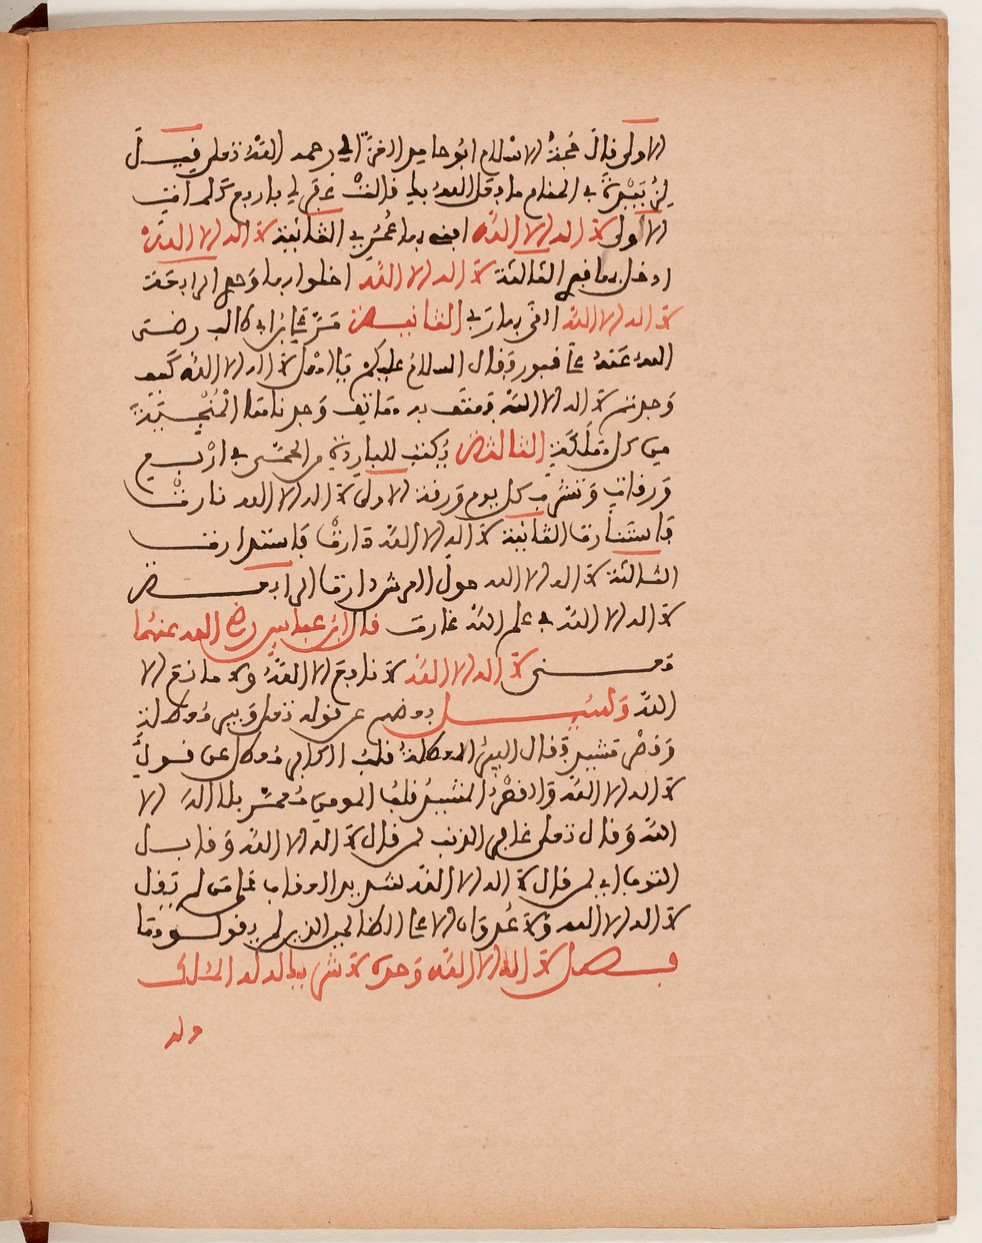 الاولى قال حجة الاسلام ابو حامد الغزالي رحمه الله تعلى قيل
في المنام ما فعل الله بك قالت غفر لي باربع كلمات
الاولى لا اله الا الله افني بها عمري الثانية لا اله الا الله
ادخل بها قبري الثالثة لا اله الا الله اخلوا بها وحدي الرابعة
لا اله الا الله القى بها ربي الثانيـة مر علي بن ابي طالب رضي
الله عنه على قبور فقال السلام عليكم يا اهل لا اله الا الله كيف
وجدتم لا اله الا الله فهتف به هاتف وجدناها المنجية
من كل هلكة الثالثة يكتب للبارد من الحمى في اربع
ورفات وتشرب كل يوم ورفة الاولى لا اله الا الله نارت
فاستنارت الثانية لا اله الا الله دارت فاستدارت
الثالثة لا اله الا الله حول العرش دارت الرابعـة
لا اله الا الله في علم الله غارت قال ابن عباس رضي الله عنهما
معـنى لا اله الا الله لا نافع الا الله ولا مانع الا
الله وسيـل بعضهم عن قوله تعلى وبير معطلة
وقصر مشيد فقال البير المعطلة قلب الكافر معطل عن قول
لا اله الا الله والقصر المشيد قلب المومن معمر بلا اله الا
الله وقال تعلى غافر الذنب لمن قال لا اله الا الله وقابـل
التوب اي لمن قال لا اله الا الله شديد العقاب على من لم يقل
لا اله الا الله ولا عدوان الا على الظالمين الذين لم يقولوها
فـصل لا اله الا الله وحده لا شريك له له الملك
وله